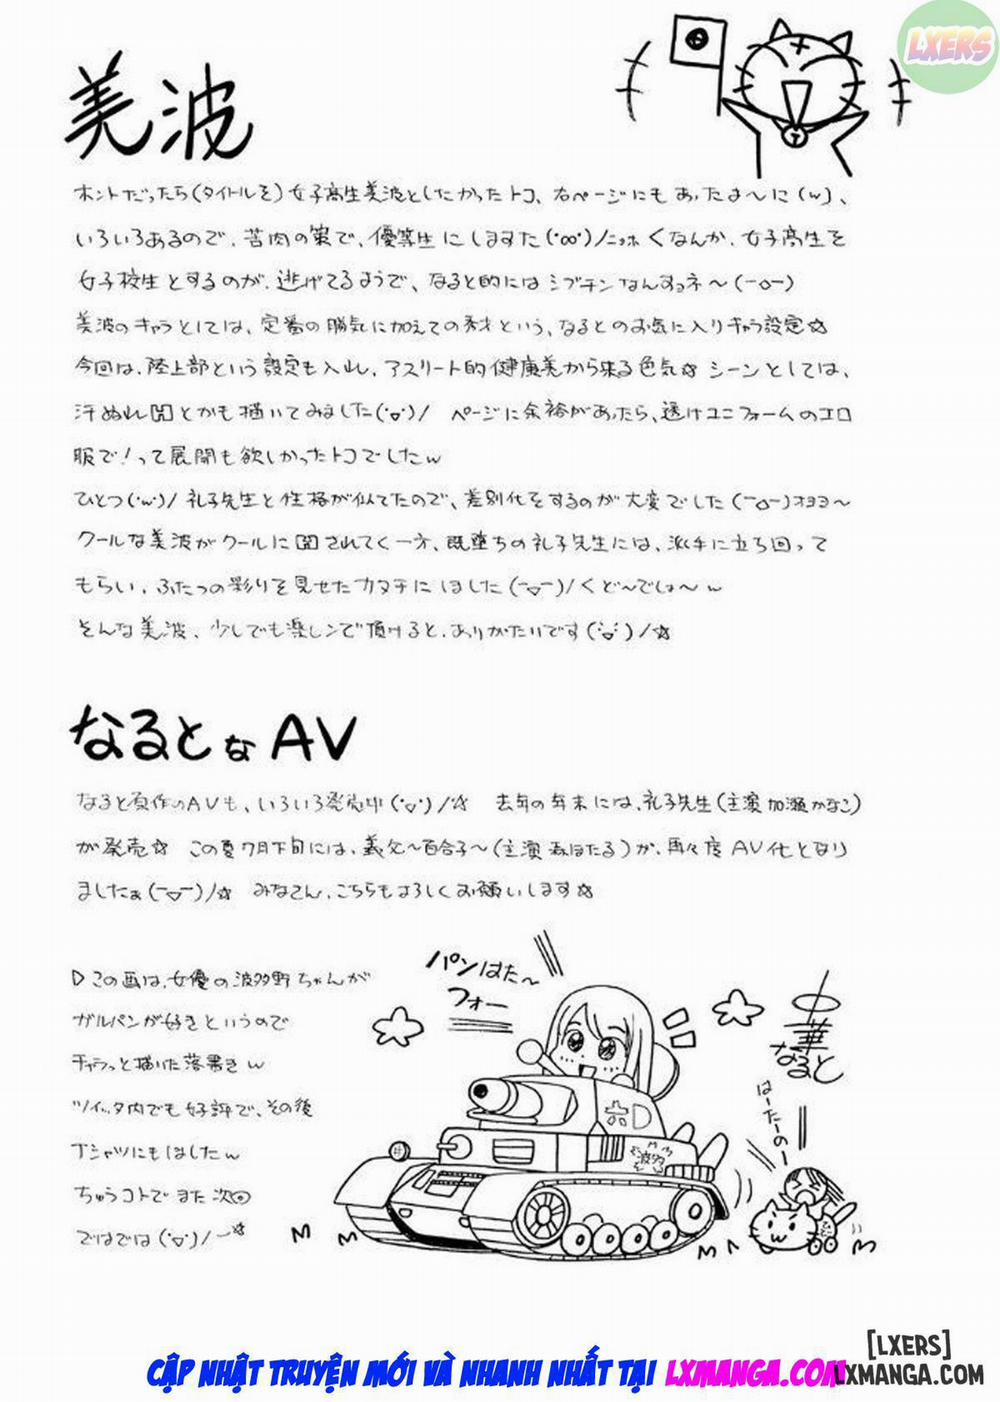 LXERS
美波
ホントだったら(タイトルを)女子高生美波としたかったトコ、右ページにもあったよ〜に(w)、
いろいろあるので、苦肉の策で、優等生にしますた(°∞°)/ニッホ くなんか、女子高生を
女子校生とするのが、逃げてるようで、なると的にはシブチンなんすョネ〜(ーoー)
美波のキャラとしては、定番の勝気に加えての秀才という、なるとのお気に入りキャラ設定☆
今回は、陸上部という設定も入れ、アスリート的健康美から来る色気☆ シーンとしては、
汗ぬれ とかも描いてみました(°▽°)/ ページに余裕があったら、透けユニフォームのエロ
服で!って展開も欲しかったトコでしたw
ひとつ(°w°)/ 礼子先生と性格が似てたので、差別化をするのが大変でした(ー△ー)オヨヨ〜
クールな美波がクールに されてく一方、既堕ちの礼子先生には、派手に立ち回って
もらい、ふたつの彩りを見せたカタチにしました(ー▽ー)/くど〜でしょ〜w
そんな美波、少しでも楽しンで頂けると、ありがたいです(°▽°)/☆
なるとなAV
なると原作のAVも、いろいろ発売中(°▽°)/☆ 去年の年末には、礼子先生(主演 加瀬かなこ)
が発売☆ この夏7月下旬には、義父〜百合子〜(主演 森ほたる)が、再々度AV化となり
ましたぁ(ー▽ー)/☆ みなさん、こちらもよろしくお願いします☆
▷この画は、女優の波多野ちゃんが
ガルパンが好きというので
チャラっと描いた落書きw
ツイッタ内でも好評で、その後
Tシャツにもしましたw
ちゅうコトでまた次回
ではでは(°▽°)/ー☆
パンはた〜
フォー
中華
なると
はーたーのー
六D
波多
CẬP NHẬT TRUYỆN MỚI VÀ NHANH NHẤT TẠI LXMANGA.COM
[LXERS]
LXMANGA.COM